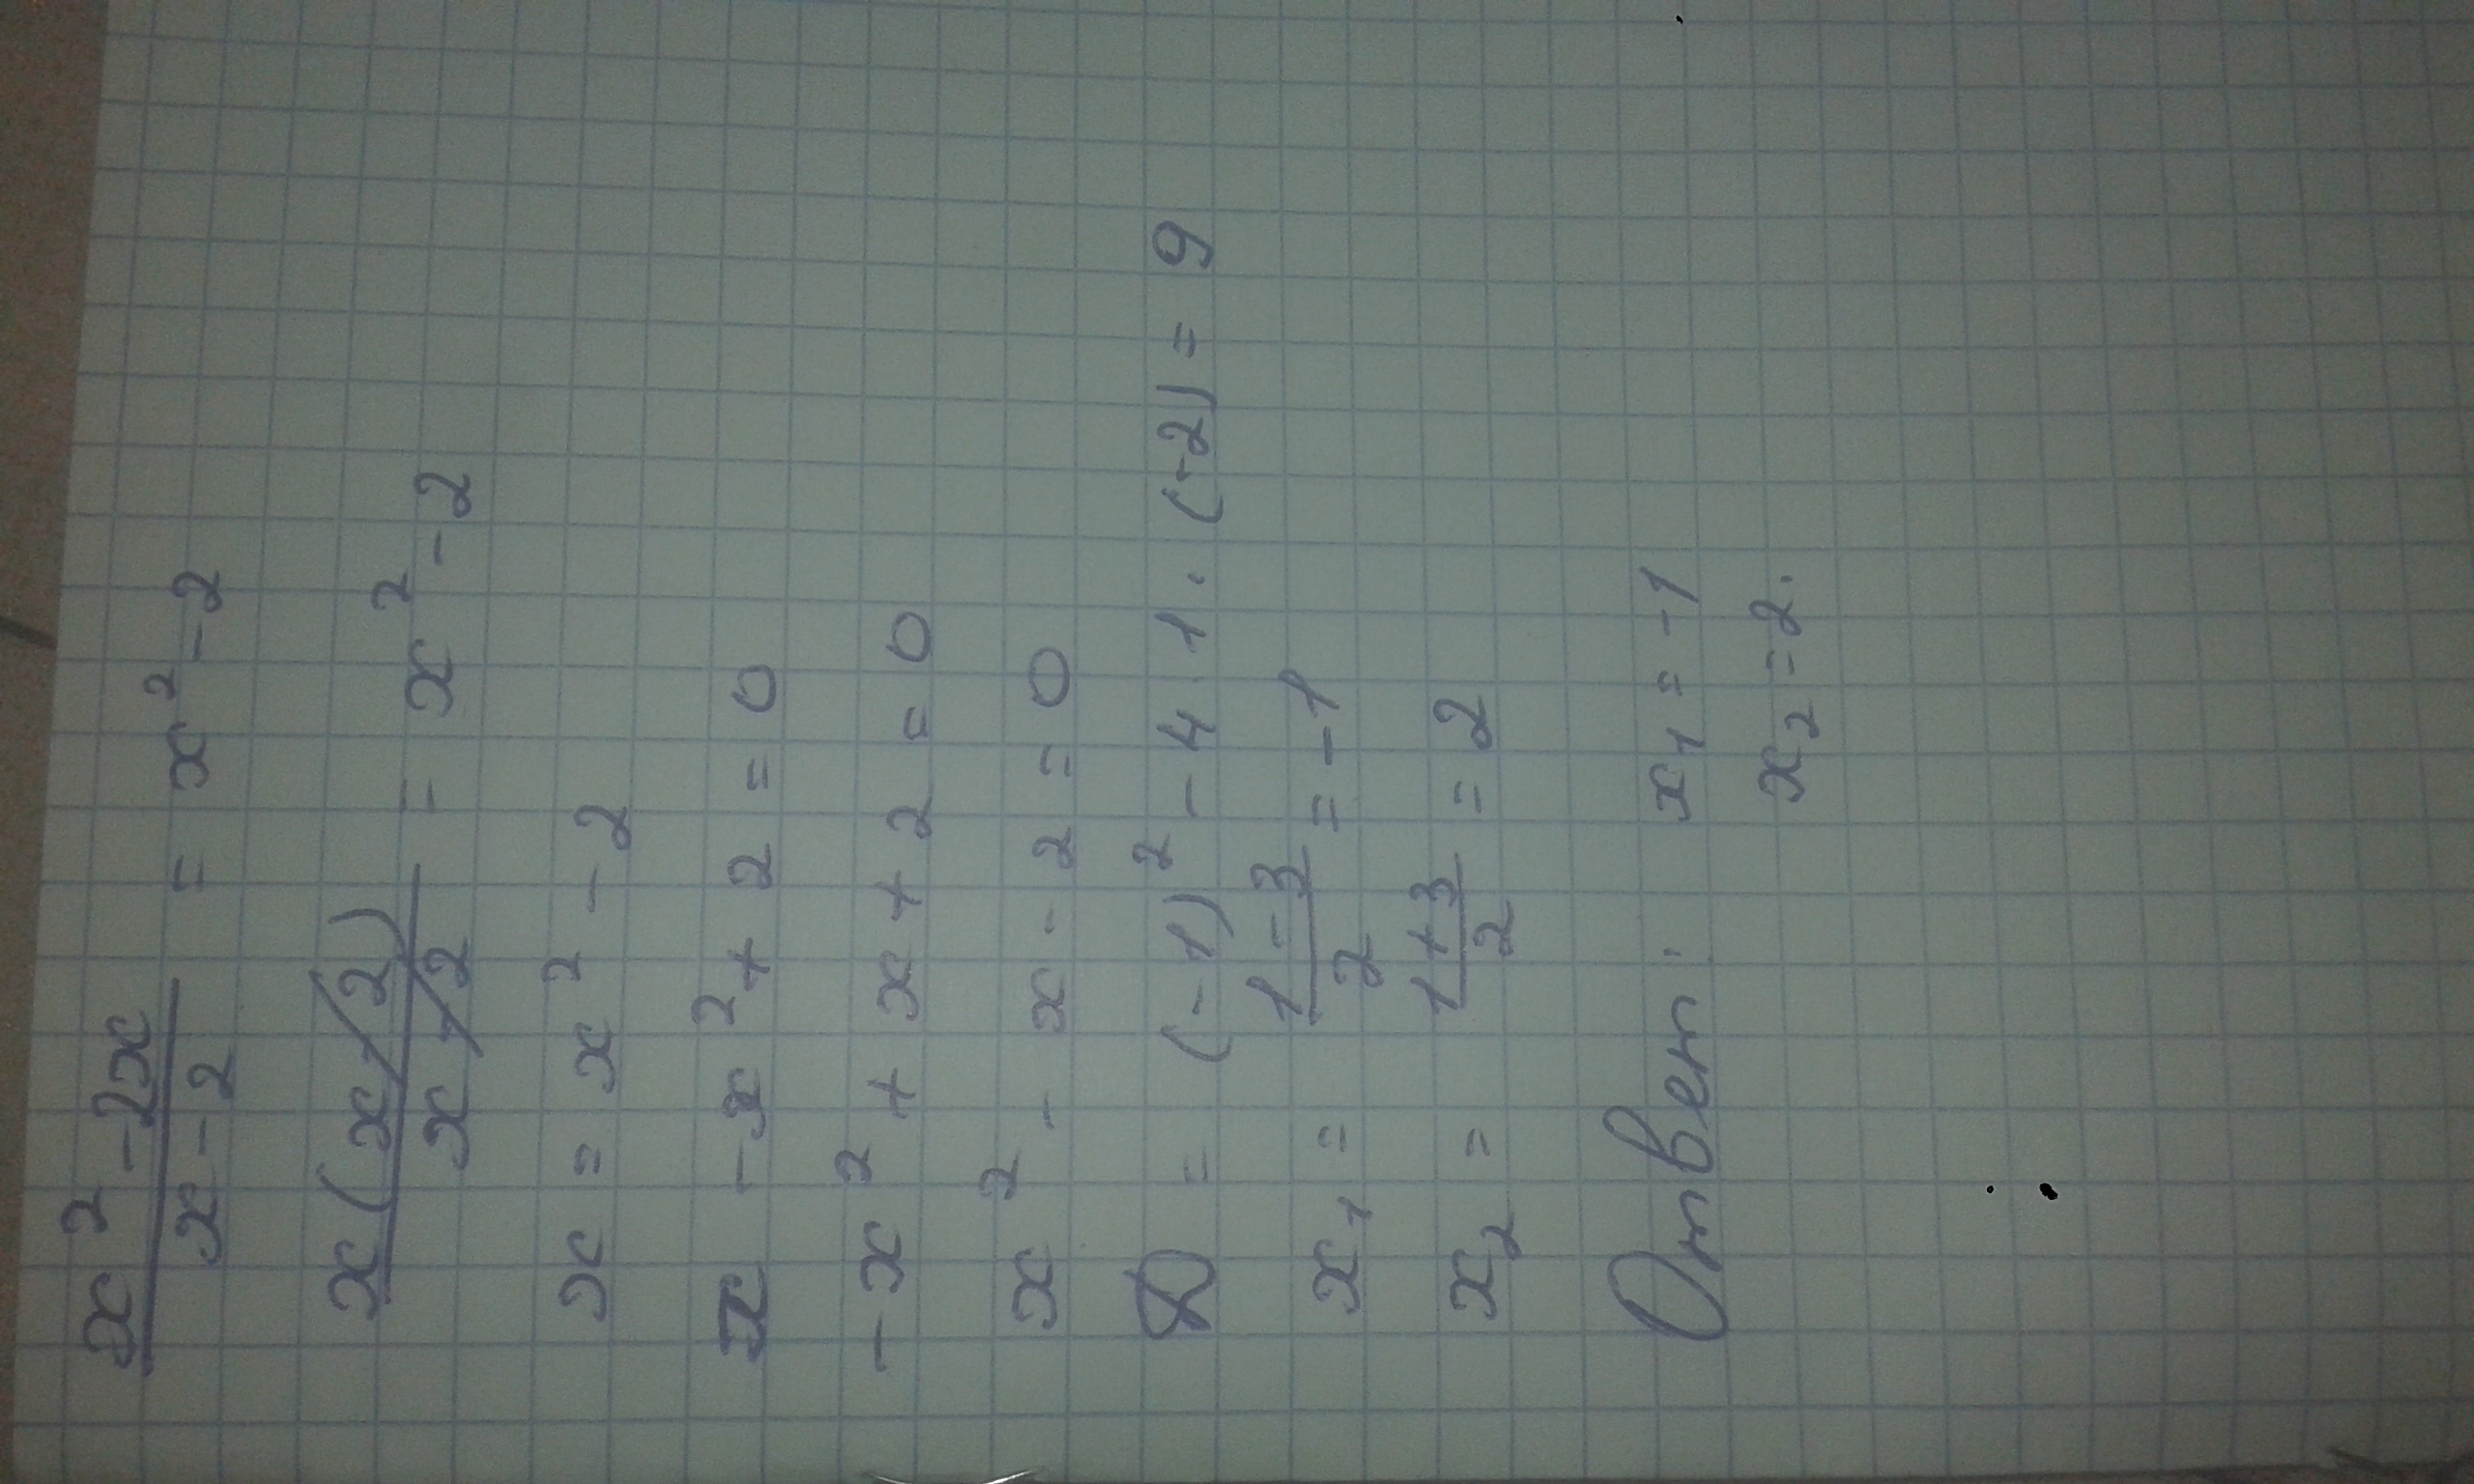 x² - 2x / x - 2 = x² - 2
x(x - 2) / x - 2 = x² - 2
x = x² - 2
x - x² + 2 = 0
- x² + x + 2 = 0
x² - x - 2 = 0
D = (-1)² - 4 · 1 · (-2) = 9
x₁ = 1 - 3 / 2 = -1
x₂ = 1 + 3 / 2 = 2
Ответ: x₁ = -1
x₂ = 2.